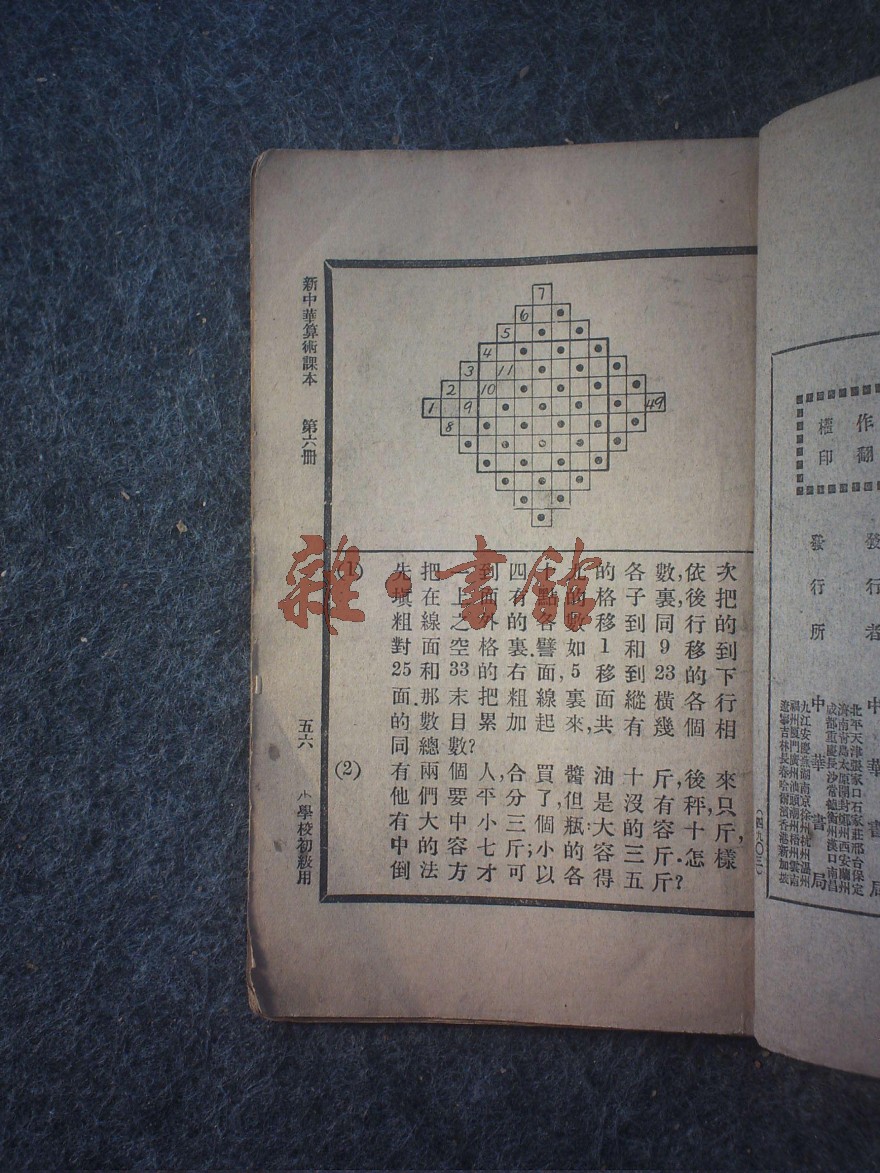 新中華算術課本　第六冊　五六　小學校初級用
7
6
5
4
3 11
2 10
1 9 49
8
(1) 先把一到四十九的各數,依次
塡在上面有點的格子裏,後把
粗線之外的各數移到同行的
對面空格裏.譬如1和9移到
25和33的右面,5移到23的下
面.那末把粗線裏面縱橫各行
的數目累加起來,共有幾個相
同總數?
(2) 有兩個人,合買醬油十斤,後來
他們要平分了,但是沒有秤,只
有大中小三個瓶:大的容十斤,
中的容七斤;小的容三斤.怎樣
倒法方才可以各得五斤?
雜·書館
作權
翻印
發行者　中華書局
發行所　中華書局
北平天津張家口石家莊邢台保定
濟南青島太原開封鄭州西安蘭州
成都重慶長沙常德衡州漢口南昌
九江安慶蕪湖南京徐州杭州溫州
福州廈門廣州汕頭潮州梧州雲南
遼寧吉林長春哈爾濱香港新加坡
(四九〇三)